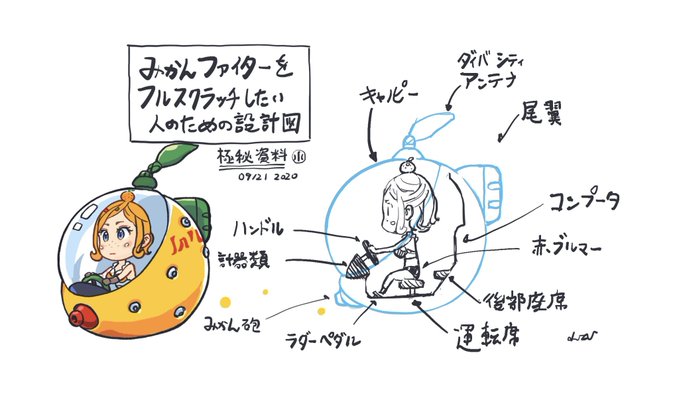 みかんファイターを
フルスクラッチしたい
人のための設計図
極秘資料㊙
09/21 2020
ダイバシティ
アンテナ
キャピー
尾翼
コンプータ
ハンドル
計器類
赤ブルマー
みかん砲
ラダーペダル
運転席
後部座席